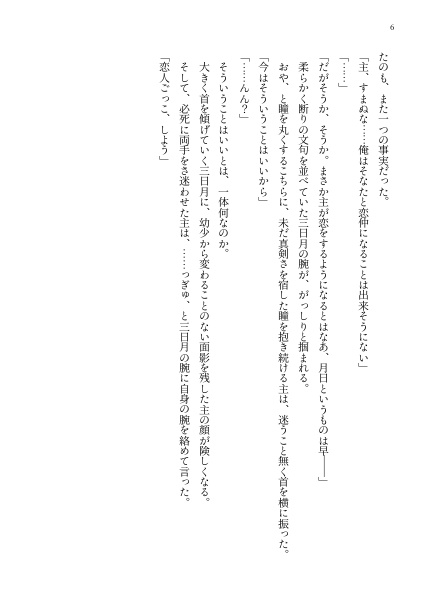 6
たのも、また一つの事実だった。
「主、すまぬな……俺はそなたと恋仲になることは出来そうにない」
「……」
「だがそうか、そうか。まさか主が恋をするようになるとはなあ、月日というものは早――」
柔らかく断りの文句を並べていた三日月の腕が、がっしりと掴まれる。
おや、と瞳を丸くするこちらに、未だ真剣さを宿した瞳を抱き続ける主は、迷うこと無く首を横に振った。
「今はそういうことはいいから」
「……んん？」
そういうことはいいとは、一体何なのか。
大きく首を傾げていく三日月に、幼少から変わることのない面影を残した主の顔が険しくなる。
そして、必死に両手をさ迷わせた主は、……っぎゅ、と三日月の腕に自身の腕を絡めて言った。
「恋人ごっこ、しよう」